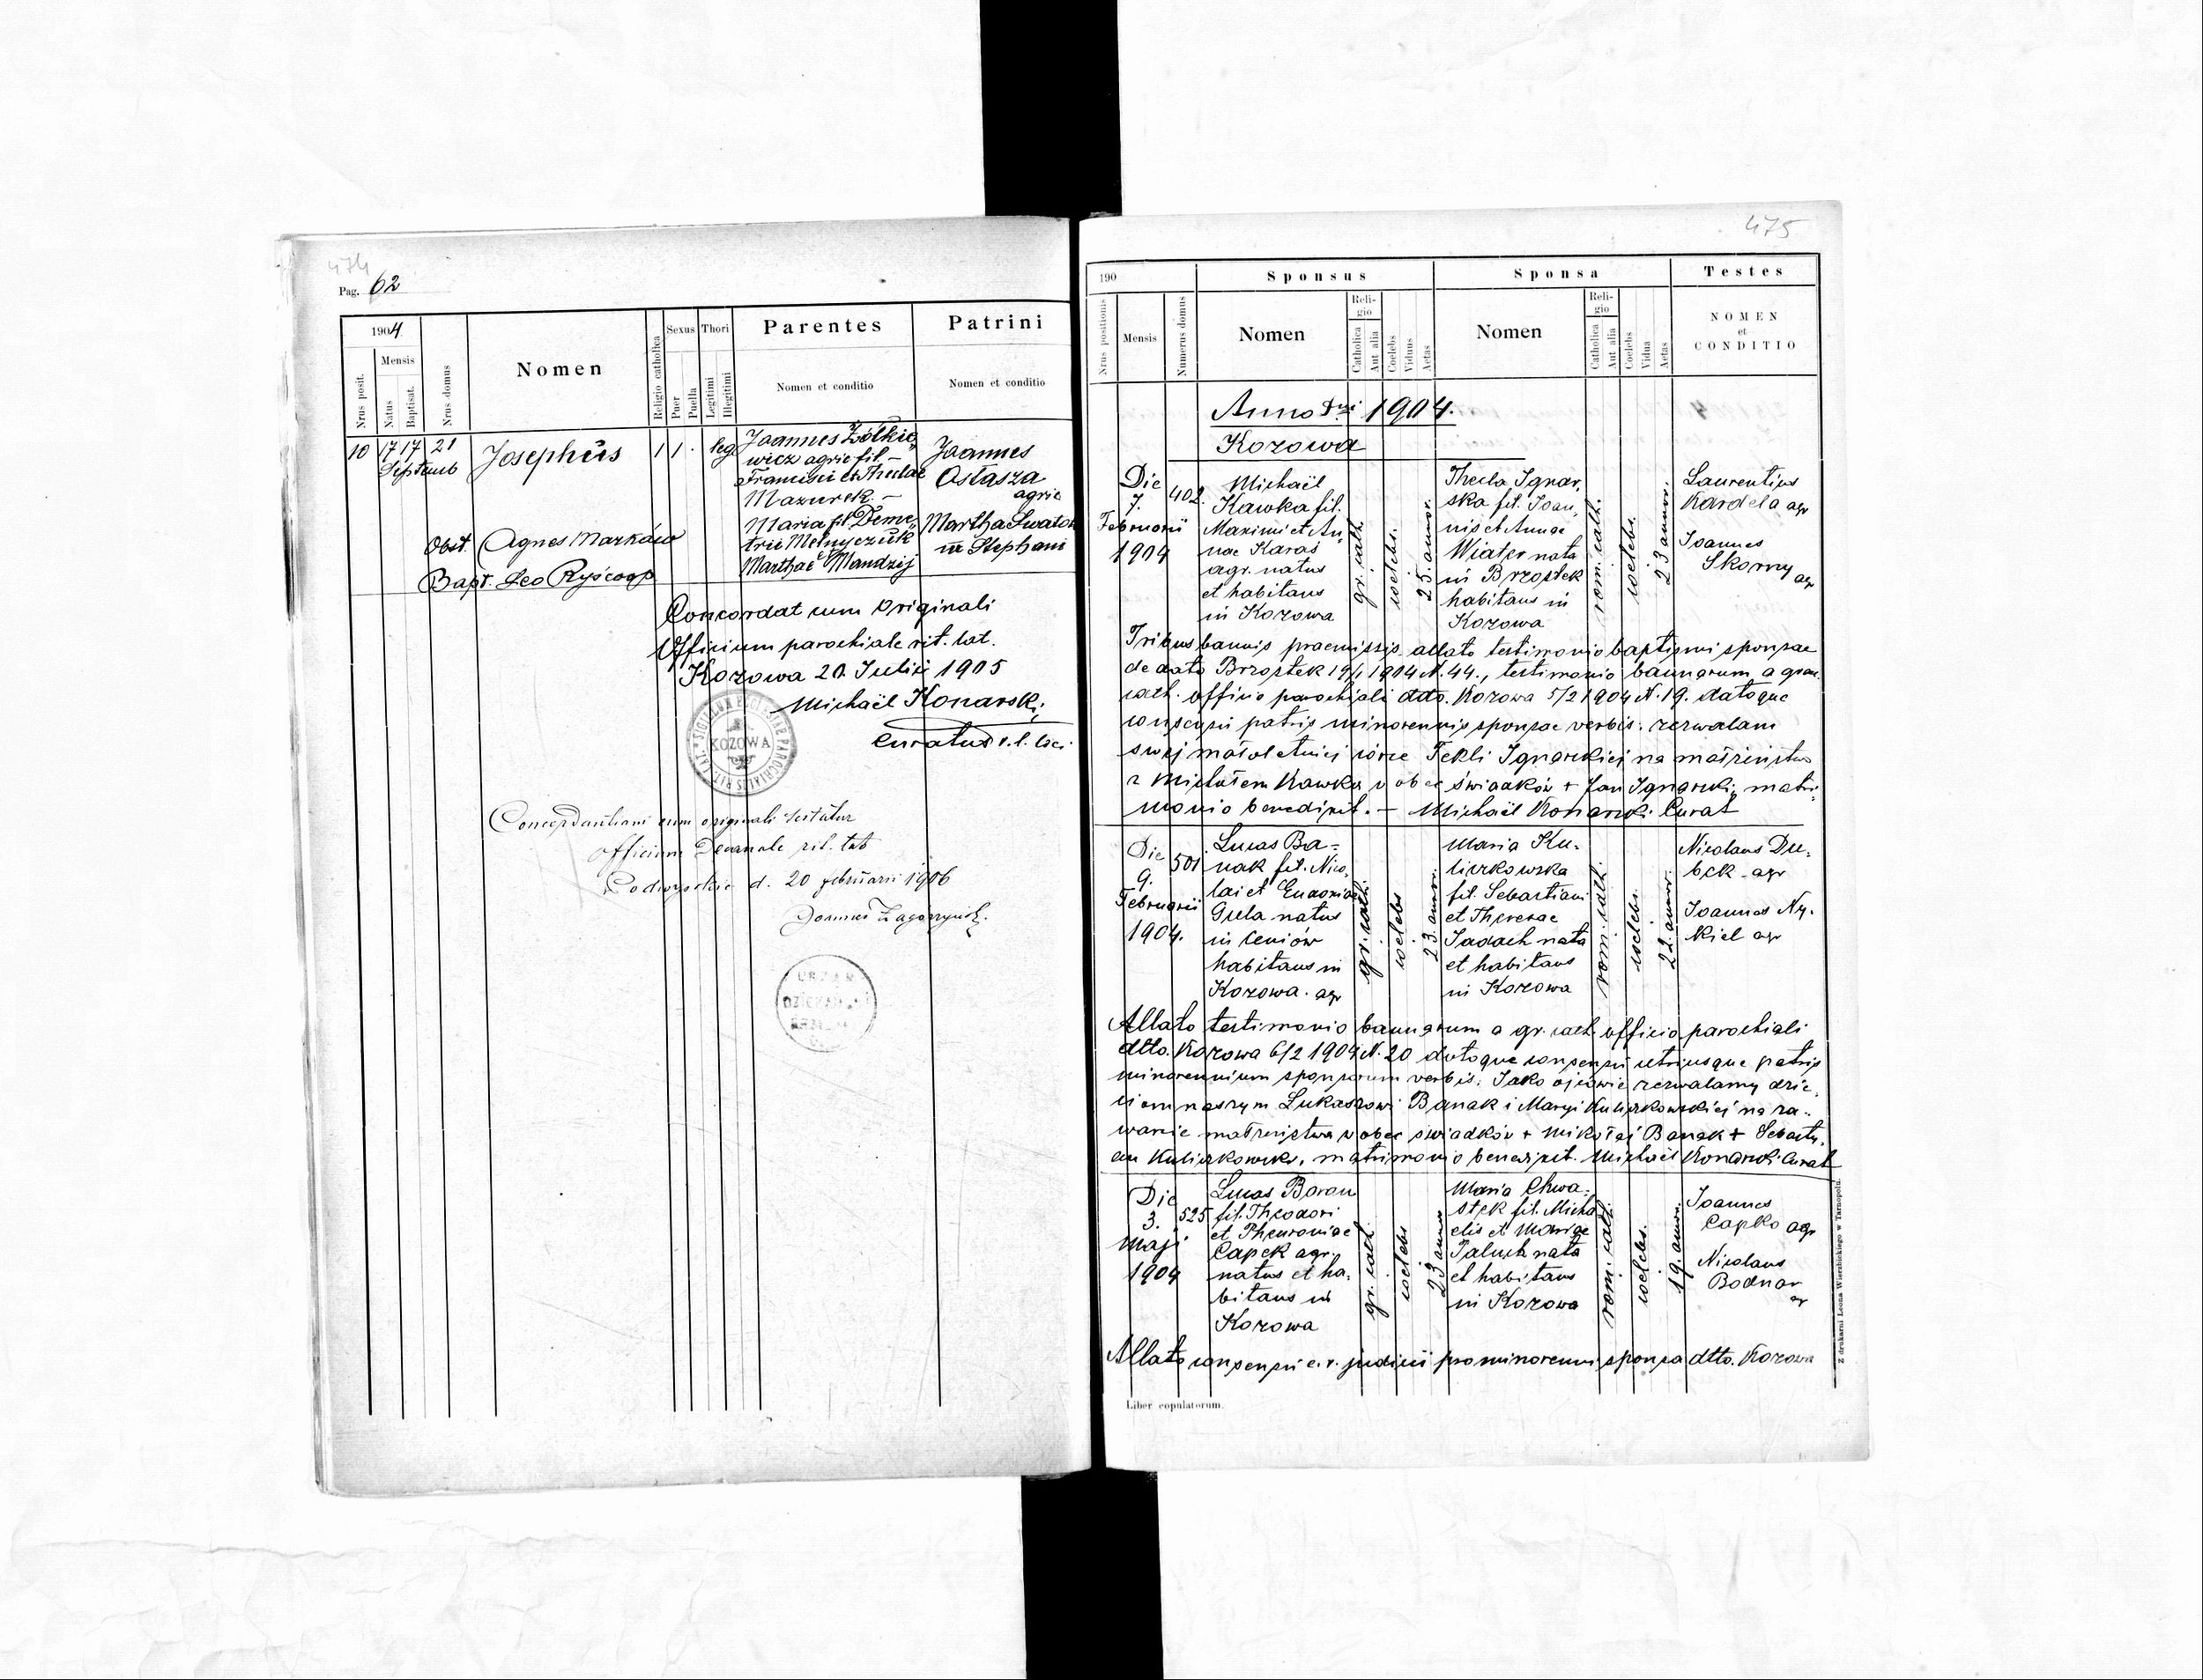 474
Pag. 62
1904
Nrus posit.
Mensis
Natus
Baptisat.
Nrus domus
Nomen
Religio catholica
Sexus
Puer
Puella
Thori
Legitimi
Illegitimi
Parentes
Nomen et conditio
Patrini
Nomen et conditio
10 17 17 21 Josephus 1 1 leg
Septemb
Joannes Żółkie„
wicz agric fil –
Francisci et Theclae
Mazurek. –
Maria fil. Deme„
trii Melnyczuk
Marthae Mandzij
Joannes
Ostasza
agric
Martha Swatok
ux Stephani
Obst. Agnes Marków
Bapt. Leo Ryś coop
Concordat cum Originali
Officium parochiale rit. lat.
Kozowa 20. Julii 1905
Michaël Konarski
Curatus r. l. loci
KOZOWA
Concordantiam cum originali testatur
Officium Decanale rit. lat
d. 20 februarii 1906
475
190
Nrus positionis
Mensis
Numerus domus
Sponsus
Nomen
Reli-
gio
Catholica
Aut alia
Coelebs
Viduus
Aetas
Sponsa
Nomen
Reli-
gio
Catholica
Aut alia
Coelebs
Vidua
Aetas
Testes
NOMEN
et
CONDITIO
Anno Dni 1904.
Kozowa
Die
7.
Februarii
1904
402.
Michaël
Kawka fil.
Maximi et An„
nae Karaś
agr. natus
et habitans
in Kozowa
gr. cath.
coelebs.
25. annor.
Thecla Ignar„
ska fil. Joan„
nis et Annae
Wiater nata
in Brzostek
habitans in
Kozowa
rom. cath.
coelebs.
23 annor.
Laurentius
Kardela agr
Joannes
Skorny agr
Tribus bannis praemissis allato testimonio baptismi sponsae
de dato Brzostek 19/1 1904 N. 44., testimonio bannorum a graec.
cath. officio parochiali ddto. Kozowa 5/2 1904 N. 19. datoque
consensu patris minorennis sponsae verbis: zezwalam
swej małoletniej córce Tekli Ignarskiej na małżeństwo
z Michałem Kawką wobec świadków + Jan Ignarski, matri„
monio benedixit. – Michaël Konarski Curat
Die
9.
Februarii
1904.
501
Lucas Ba-
nak fil. Nico„
lai et Eudoxiae
Gula natus
in Ceniów
habitans in
Kozowa. agr
gr. cath.
coelebs
23 annor.
Maria Ku„
liczkowska
fil. Sebastiani
et Theresae
Jadach nata
et habitans
in Kozowa
rom. cath.
coelebs.
22. annor.
Nicolaus Du„
bek agr
Joannes Ny„
kiel agr
Allato testimonio bannorum a gr. cath. officio parochiali
ddto. Kozowa 6/2 1904 N. 20 datoque consensu utriusque patris
minorennium sponsorum verbis: Jako ojcowie zezwalamy dzie„
ciom naszym Łukaszowi Banak i Maryi Kuliczkowskiej na za„
warcie małżeństwa wobec świadków + Mikołaj Banak + Sebasty„
an Kuliczkowski, matrimonio benedixit. Michaël Konarski Curat
Die
3.
Maji
1904
525
Lucas Baran
fil. Theodori
et Pheuroniae
Capek agr.
natus et ha„
bitans in
Kozowa
gr. cath.
coelebs
23 annor
Maria Chwa„
stek fil. Micha
elis et Mariae
Paluch nata
et habitans
in Kozowa
rom. cath.
coelebs.
19. annor.
Joannes
Capko agr
Nicolaus
Bodnar
agr
Allato consensu c. r. judicii pro minorenni sponsa ddto. Kozowa
Liber copulatorum.
Z drukarni Leona Wierzbickiego w Tarnopolu.